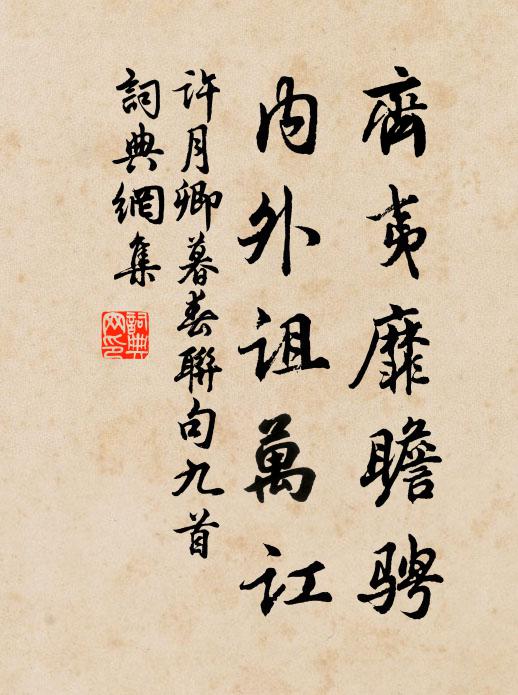 齊夷靡瞻騁
內外詛萬訌
許月卿暮春聯句九首
詞典網集
詞典網印